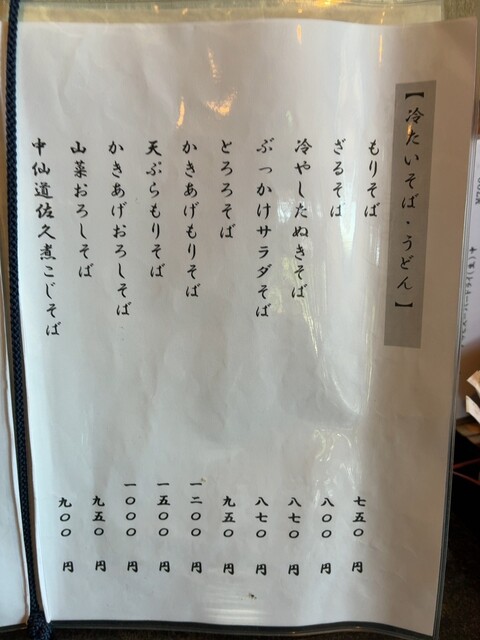 【冷たいそば・うどん】
もりそば 七五〇 円
ざるそば 八〇〇 円
冷やしたぬきそば 八七〇 円
ぶっかけサラダそば 八七〇 円
とろろそば 九五〇 円
かきあげもりそば 一二〇〇 円
天ぷらもりそば 一五〇〇 円
かきあげおろしそば 一〇〇〇 円
山菜おろしそば 九五〇 円
中仙道佐久煮こじそば 九〇〇 円